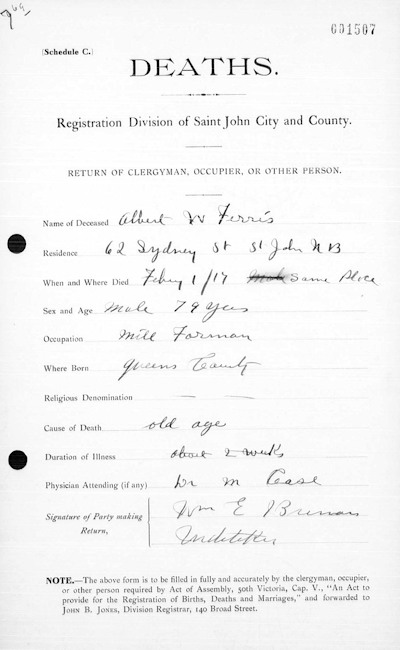 601507
[Schedule C.]
DEATHS.
Registration Division of Saint John City and County.
RETURN OF CLERGYMAN, OCCUPIER, OR OTHER PERSON.
Name of Deceased Albert W Ferris
Residence 62 Sydney St St John NB
When and Where Died Feby 1/17 Same Place
Sex and Age Male 79 yrs
Occupation Mill Forman
Where Born Queens County
Religious Denomination — —
Cause of Death old age
Duration of Illness about 2 weeks
Physician Attending (if any) Dr M Case
Signature of Party making Return, Wm E Brennan
Undertaker
NOTE.—The above form is to be filled in fully and accurately by the clergyman, occupier,
or other person required by Act of Assembly, 50th Victoria, Cap. V., "An Act to
provide for the Registration of Births, Deaths and Marriages," and forwarded to
JOHN B. JONES, Division Registrar, 140 Broad Street.